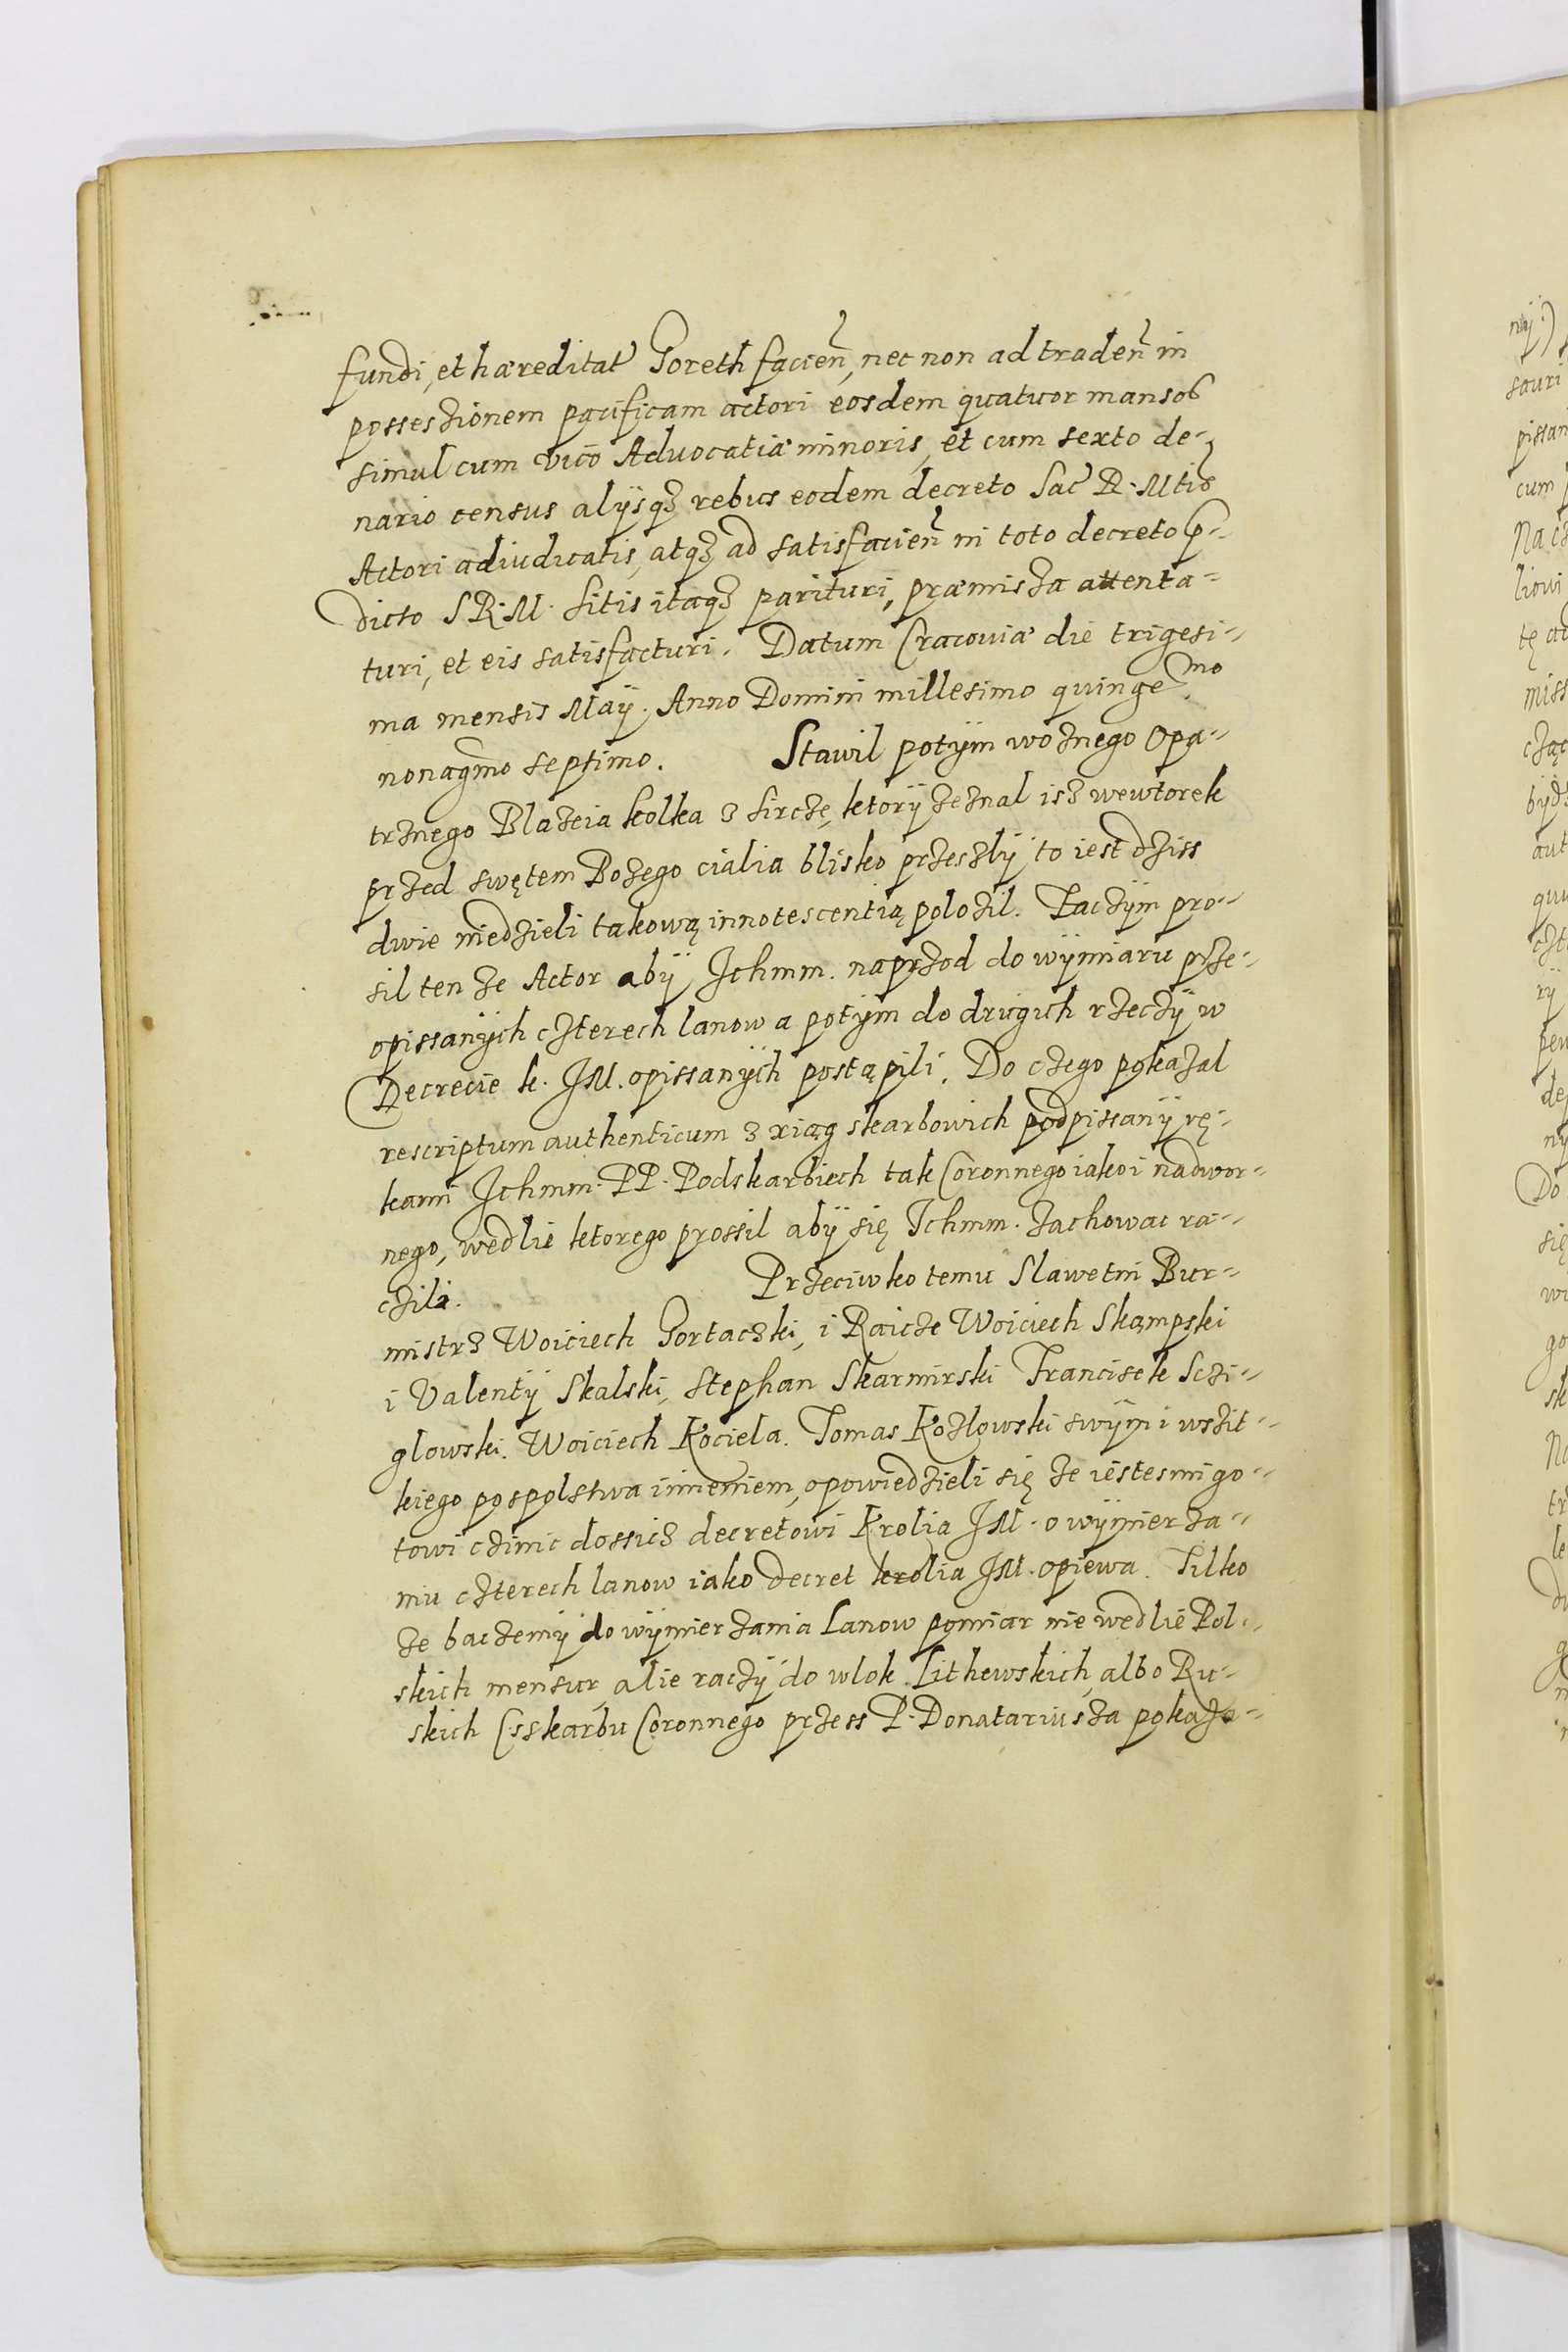 fundi, et hæreditat Goreth facien, nec non ad traden in
possessionem pacificam actori eosdem quatuor mansos
simul cum vico Advocatiæ minoris, et cum sexto de-
nario census alÿsqȝ rebus eodem decreto Sac R. Mtis
Actori adiudicatis, atqȝ ad satisfacien in toto decreto p-
dicto S R. M. sitis itaqȝ parituri, præmissa attenta-
turi, et eis satisfacturi. Datum Cracoviæ die trigesi-
ma mensis Maÿ. Anno Domini millesimo quinge.mo
nonagmo septimo. Stawil potÿm woznego Opa-
trznego Blazeia kolka z sircze, ktorÿ zeznal isz wewtorek
przed swętem Bozego cialia blisko przeszlÿ to iest dziss
dwie niedzieli takową innotescentią polozil. Zaczÿm pro-
sil ten ze Actor abÿ Jchmm. naprzod do wÿmiaru prze-
opissanÿch czterech lanow a potÿm do drugich rzeczÿ w
Decrecie k. JM. opissanÿch postąpili. Do czego pokazal
rescriptum authenticum z xiąg skarbowich podpissanÿ rę-
kami Jchmm. PP. Podskarbiech tak Coronnego iako i nadwor-
nego, wedlie ktorego prossil abÿ się Jchmm. zachowac ra-
czili. Przeciwko temu Slawetni Bur-
mistrz Woiciech Gortaczki, i Raicze Woiciech Skąmpski
i Valentÿ Skalski, Stephan Skarmirski Francisek Sczi-
glowski. Woiciech Kociela. Tomas Kozlowski swÿm i wszit-
kiego pospolstwa imieniem, opowiedzieli się ze iestesmi go-
towi czinic dossicz decretowi Krolia JM. o wÿmierza-
niu czterech lanow iako decret krolia JM. opiewa. Tilko
ze baczemÿ do wÿmierzania Lanow pomiar nie wedlie Pol-
skich mensur, alie raczÿ do wlok Lithewskich, albo Ru-
skich Csskarbu Coronnego przess P. Donatariusza pokaza-